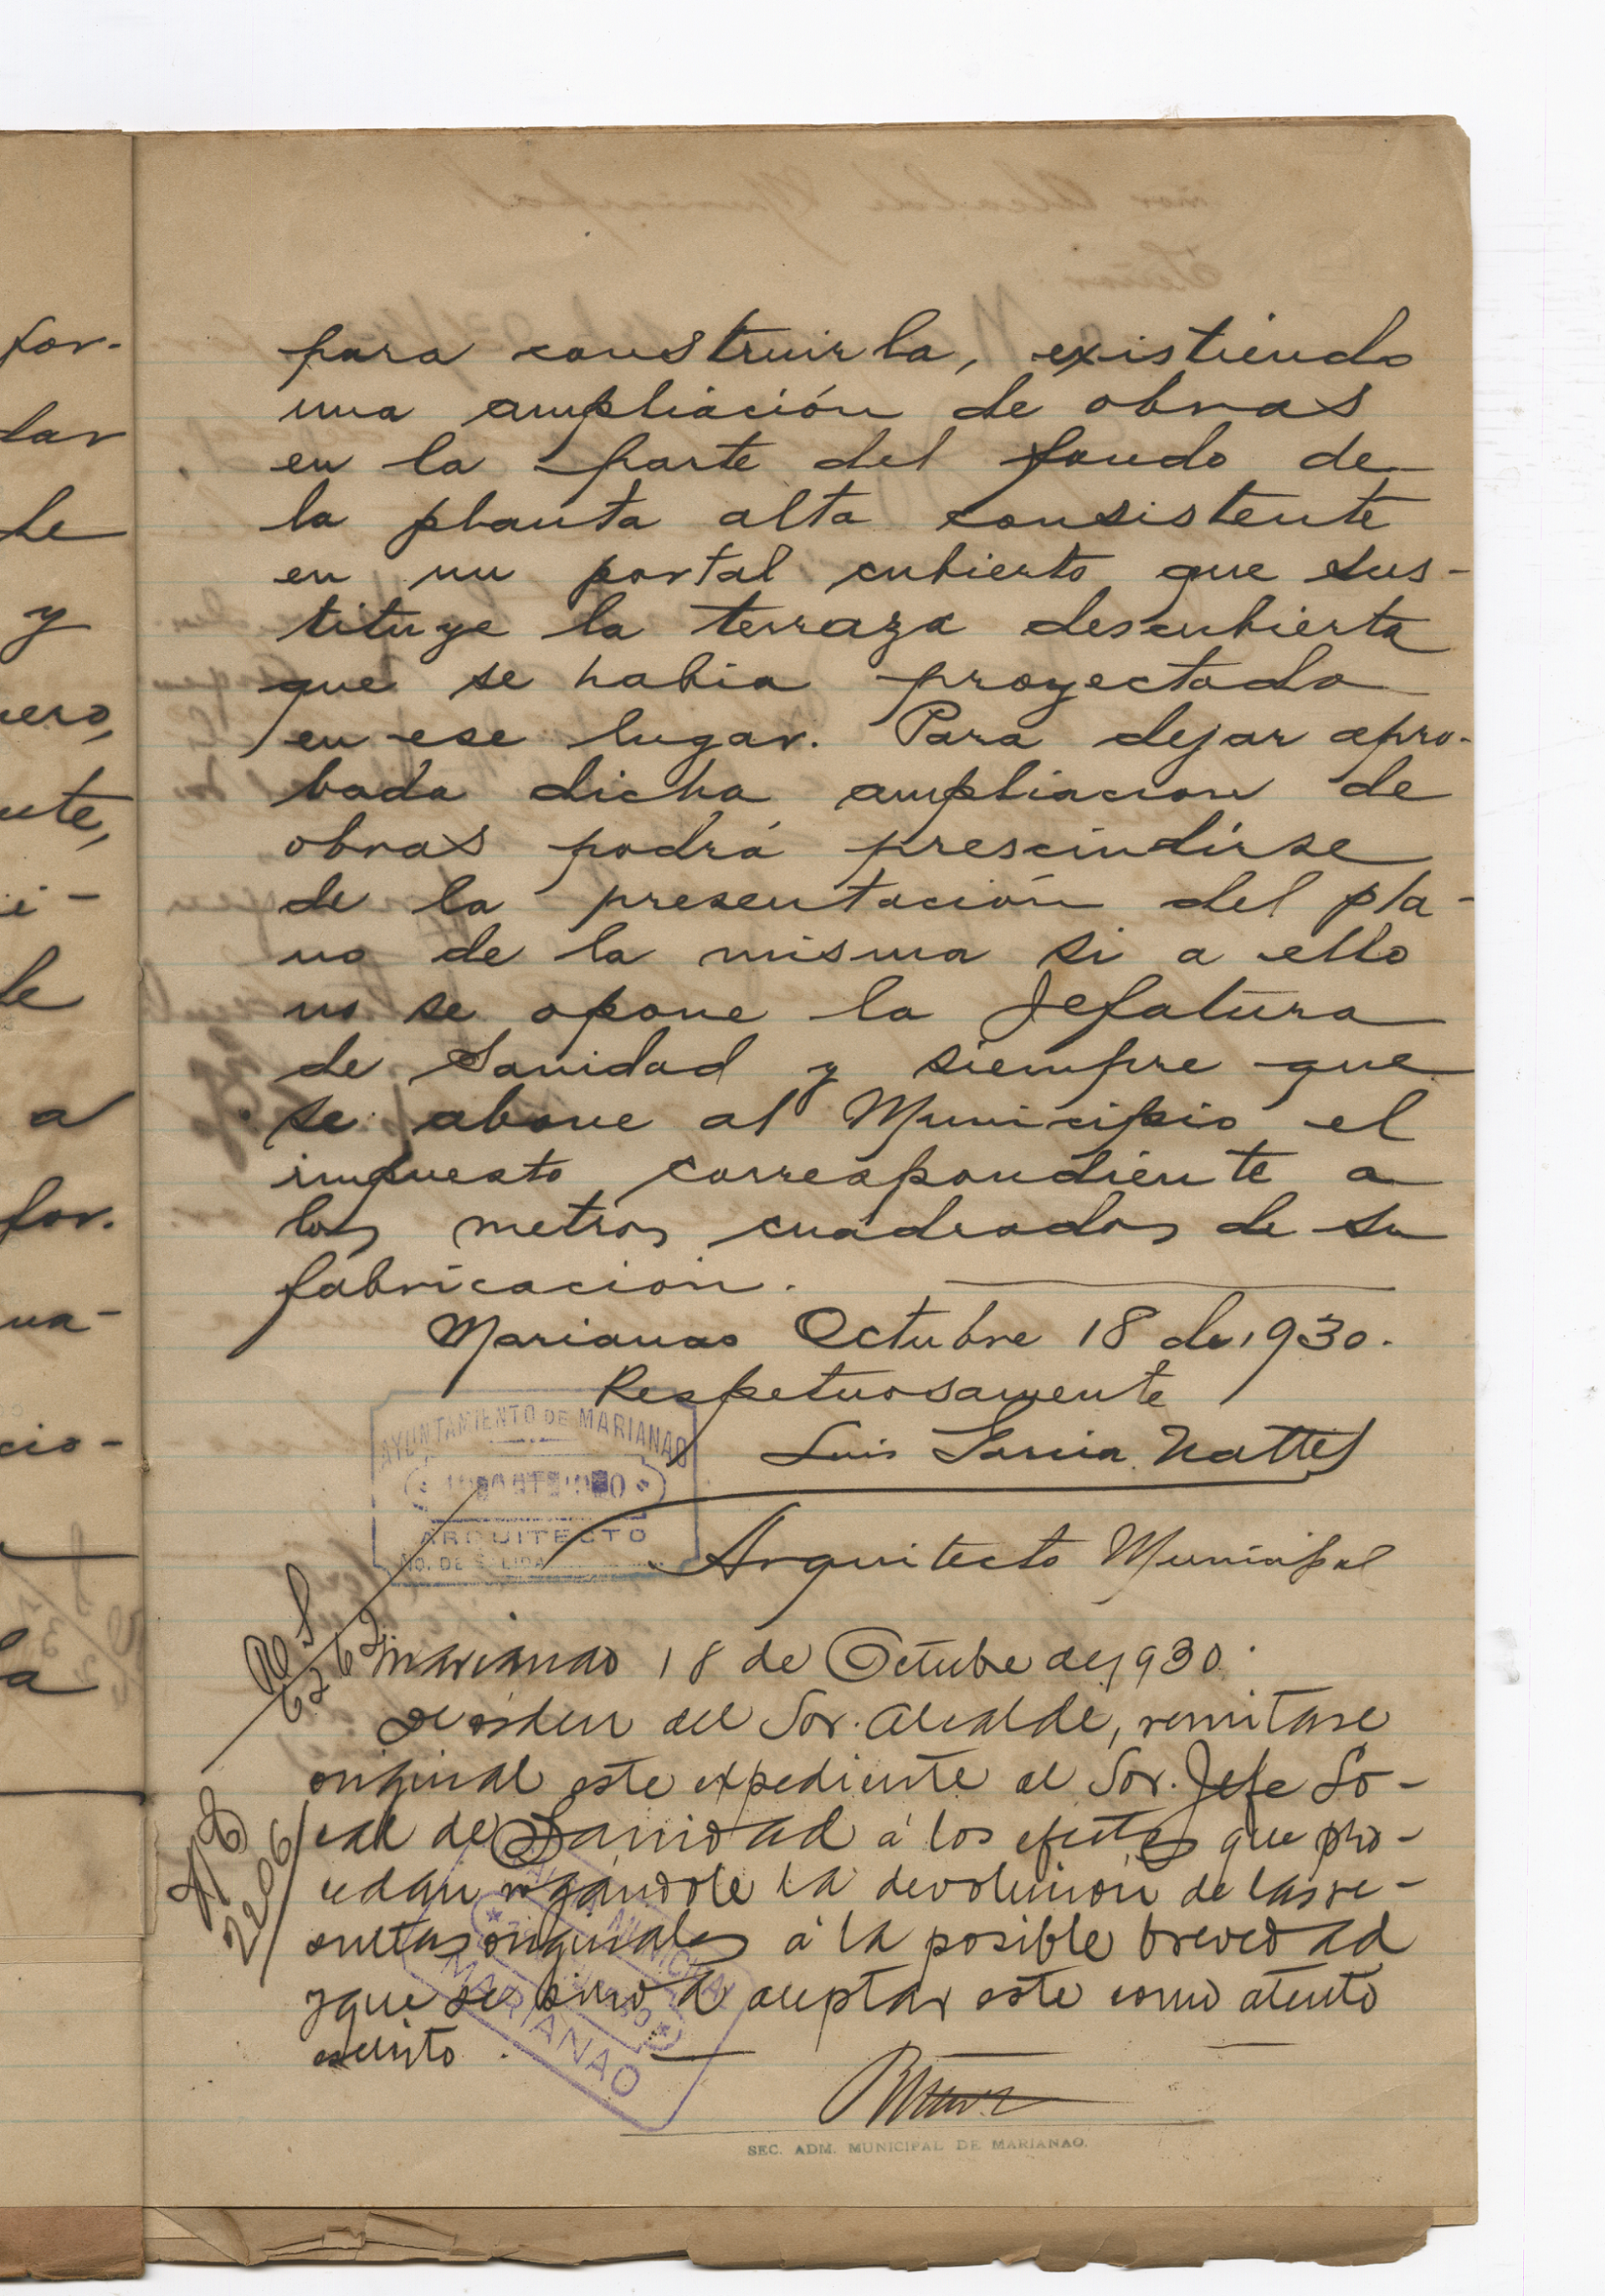 for-
dar
de
y
nero,
ente,
i-
de
a
for.
na-
cio-
la
para construirla, existiendo
una ampliación de obras
en la parte del fondo de
la planta alta consistente
en un portal cubierto que sus-
tituye la terraza descubierta
que se habia proyectado
en ese lugar. Para dejar apro-
bada dicha ampliacion de
obras podrá prescindirse
de la presentación del pla-
no de la misma si a ello
no se opone la Jefatura
de Sanidad y siempre que
se abone al Municipio el
impuesto correspondiente a
los metros cuadrados de su
fabricacion.
Marianao Octubre 18 de 1930.
Respetuosamente
Luis Garcia Nattes
Arquitecto Municipal
AYUNTAMIENTO DE MARIANAO
ARQUITECTO
NO. DE SALIDA
Marianao 18 de Octubre de 1930.
De orden del Sor. Alcalde, remitase
original este expediente al Sor. Jefe Lo-
cal de Sanidad á los efectos que pro-
cedan rogándole la devolucion de las re-
sultas originales á la posible brevedad
y que se sirva aceptar este como atento
escrito.
2206
6262
MUNICIPAL
MARIANAO
SEC. ADM. MUNICIPAL DE MARIANAO.